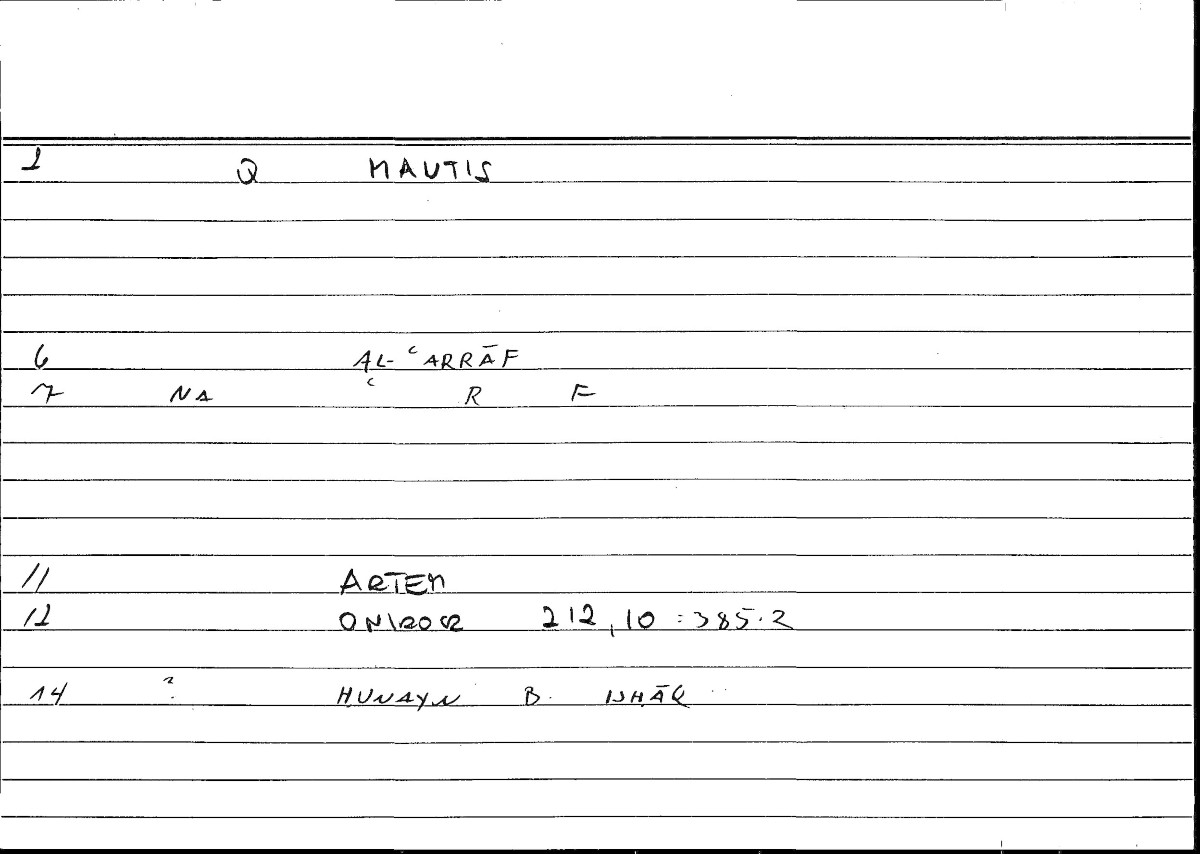 1 Q MAUTIS
6 AL-ʿARRĀF
7 NA ʿ R F
11 ARTEM
12 ONIROCR 212,10 :385.2
14 ? ḤUNAYN B. ISḤĀQ